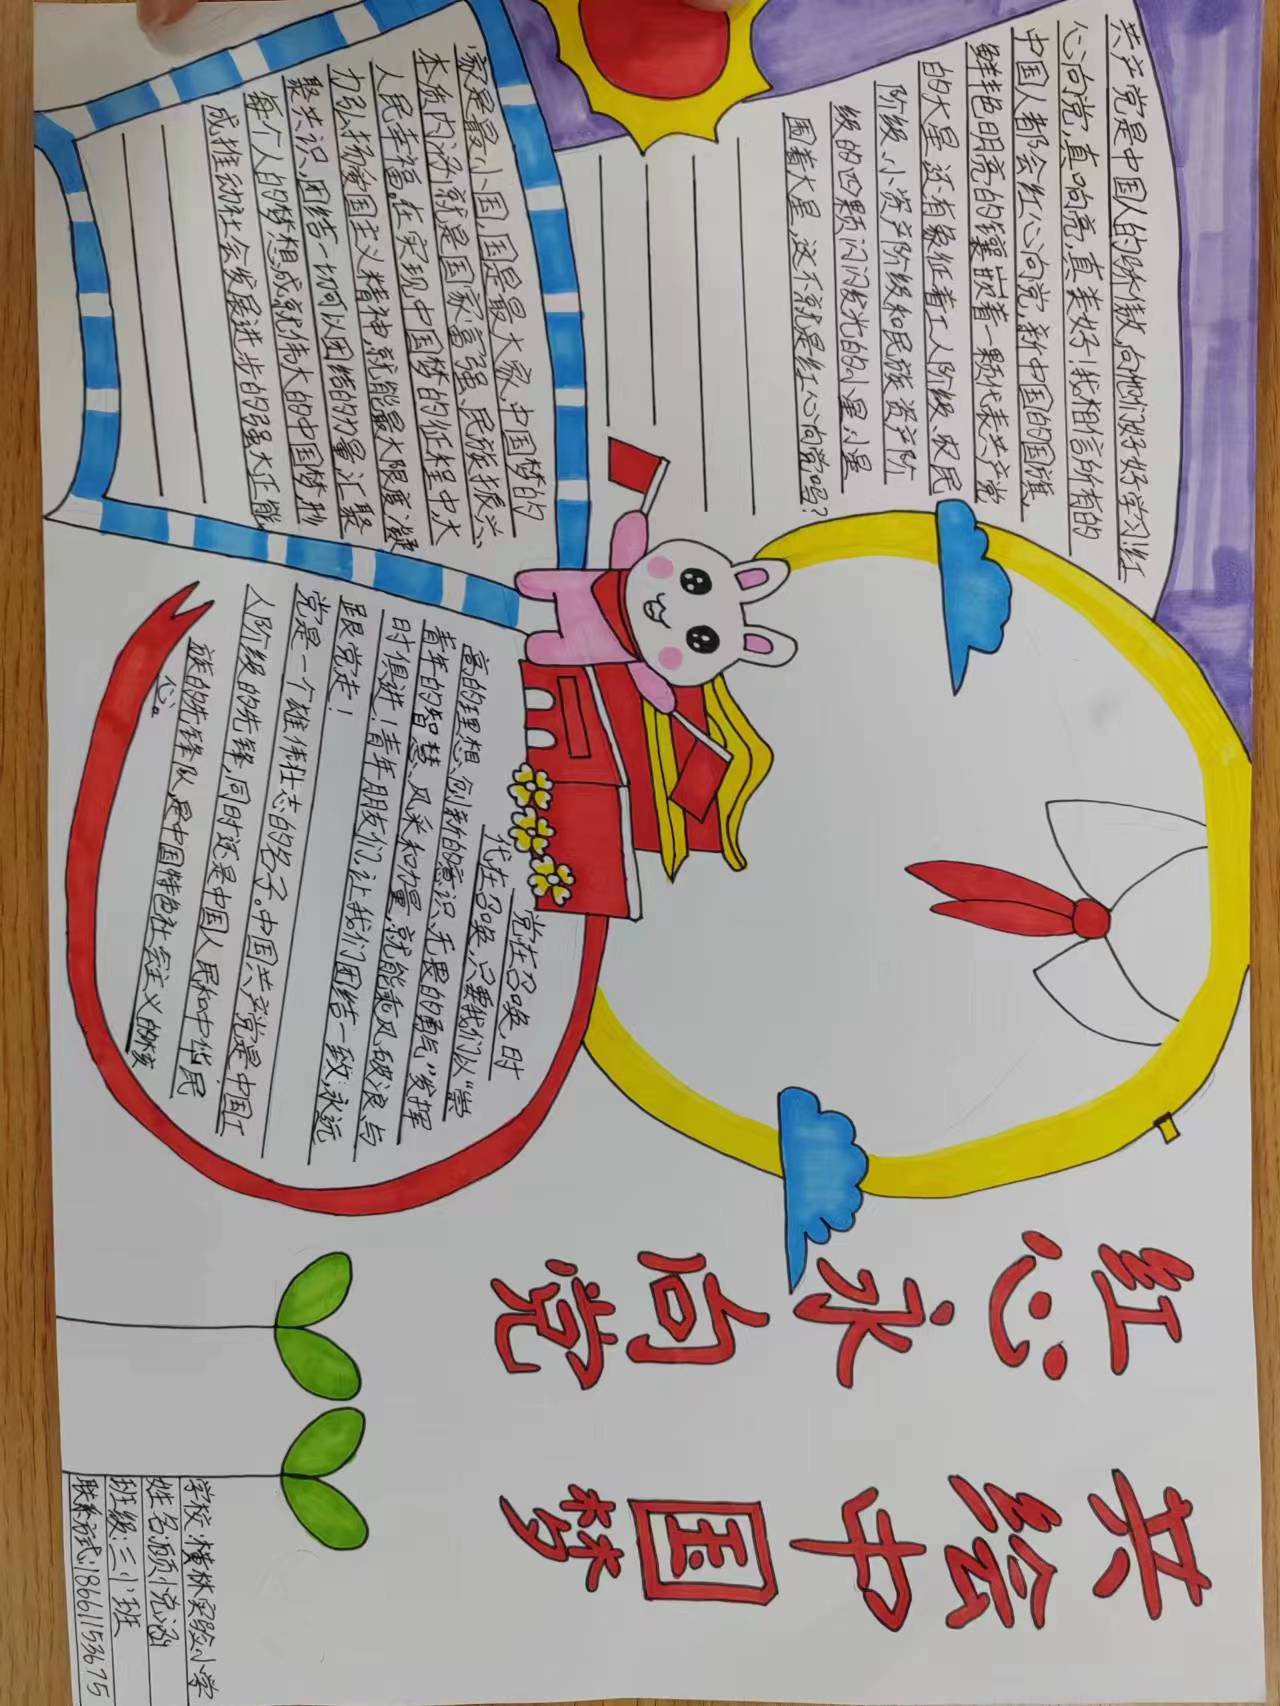 红心永向党
共绘中国梦
共产党是中国人的骄傲,向她们致好好学习!红
心向党,真响亮,真美好!我相信所有的
中国人都会红心向党,新中国的国旗,
鲜艳明亮的镶嵌着一颗代表共产党
的大星,还有象征着工人阶级、农民
阶级、小资产阶级和民族资产阶
级的四颗闪闪发光的小星,小星
围着大星,这不就是红心向党吗?
家是最小国,国是最大家,中国梦的
本质内涵就是国家富强、民族振兴、
人民幸福。在实现中国梦的征程中,大
力弘扬爱国主义精神,就能最大限度凝
聚共识,团结一切可以团结的力量,汇聚
每个人的梦想,成就伟大的中国梦,形
成推动社会发展进步的强大正能
党在召唤,时
代在召唤,只要我们以“崇
高的理想、创新的意识、无畏的勇气”发挥
青年的智慧、风采和力量,就能乘风破浪、与
时俱进!青年朋友们,让我们团结一致,永远
跟党走!
党是一个雄伟壮志的名子。中国共产党是中国工
人阶级的先锋,同时还是中国人民和中华民
族的先锋队,是中国特色社会主义的核
心。
学校:横林实验小学
姓名:顾悦涵
班级:三小班
联系方式:18661153675